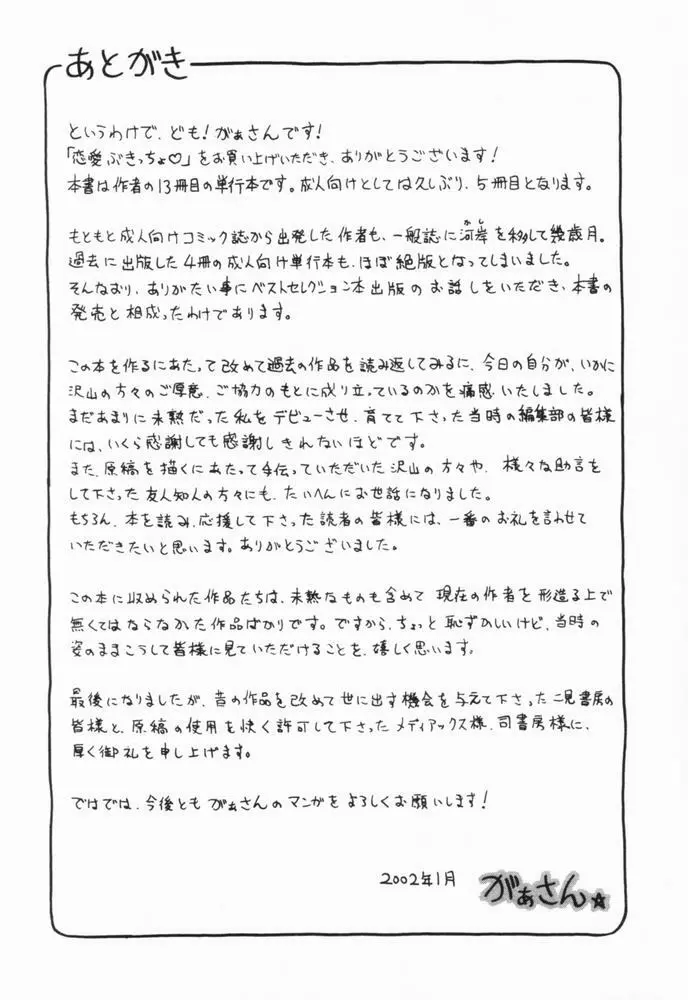 あとがき
というわけで、ども！がぁさんです！
「恋愛ぶきっちょ♡」をお買い上げいただき、ありがとうございます！
本書は作者の13冊目の単行本です。成人向けとしては久しぶり、5冊目となります。
もともと成人向けコミック誌から出発した作者も、一般誌に河岸を移して幾歳月。
過去に出版した4冊の成人向け単行本も、ほぼ絶版となってしまいました。
そんなおり、ありがたい事にベストセレクション本出版のお話しをいただき、本書の
発売と相成ったわけであります。
この本を作るにあたって改めて過去の作品を読み返してみるに、今日の自分が、いかに
沢山の方々のご厚意、ご協力のもとに成り立っているのかを痛感いたしました。
まだあまりに未熟だった私をデビューさせ、育てて下さった当時の編集部の皆様
には、いくら感謝しても感謝しきれないほどです。
また、原稿を描くにあたって手伝っていただいた沢山の方々や、様々な助言を
して下さった友人知人の方々にも、たいへんにお世話になりました。
もちろん、本を読み、応援して下さった読者の皆様には、一番のお礼を言わせて
いただきたいと思います。ありがとうございました。
この本に収められた作品たちは、未熟なものも含めて現在の作者を形造る上で
無くてはならなかた作品ばかりです。ですから、ちょっと恥ずかしいけど、当時の
姿のままこうして皆様に見ていただけることを、嬉しく思います。
最後になりましたが、昔の作品を改めて世に出す機会を与えて下さった二見書房の
皆様と、原稿の使用を快く許可して下さったメディアックス様、司書房様に、
厚く御礼を申し上げます。
ではでは、今後ともがぁさんのマンガをよろしくお願いします！
2002年1月 がぁさん☆